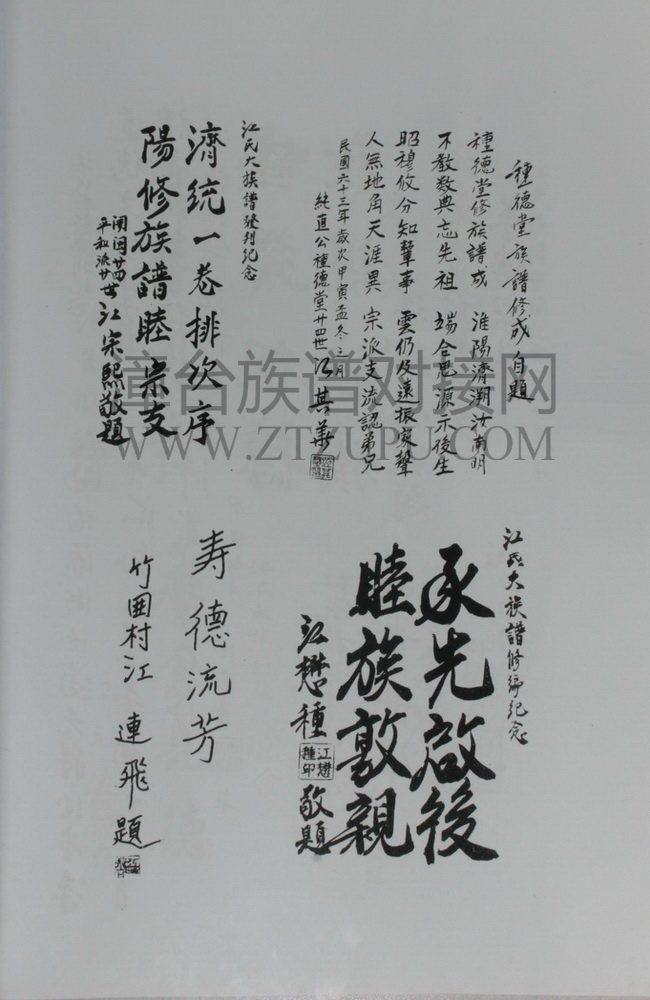 種德堂族譜修成自題
種德堂修族譜成 淮陽濟溯汝南明
不教數典忘先祖 端合思源示後生
昭穆攸分知輩事 雲仍及遠振家聲
人無地角天涯異 宗派支流認弟兄
民國六十三年歲次甲寅孟冬之月
純直公種德堂廿四世 江其華
江氏大族譜發刊紀念
濟統一卷排次序
陽修族譜睦宗支
開閩廿四世
平和派廿世 江宗熙敬題
江氏大族譜修編紀念
承先啟後
睦族敦親
江懋種 江懋種印 敬題
寿德流芳
竹围村江 連飛題
漳台族谱对接网
WWW.ZTZUPU.COM